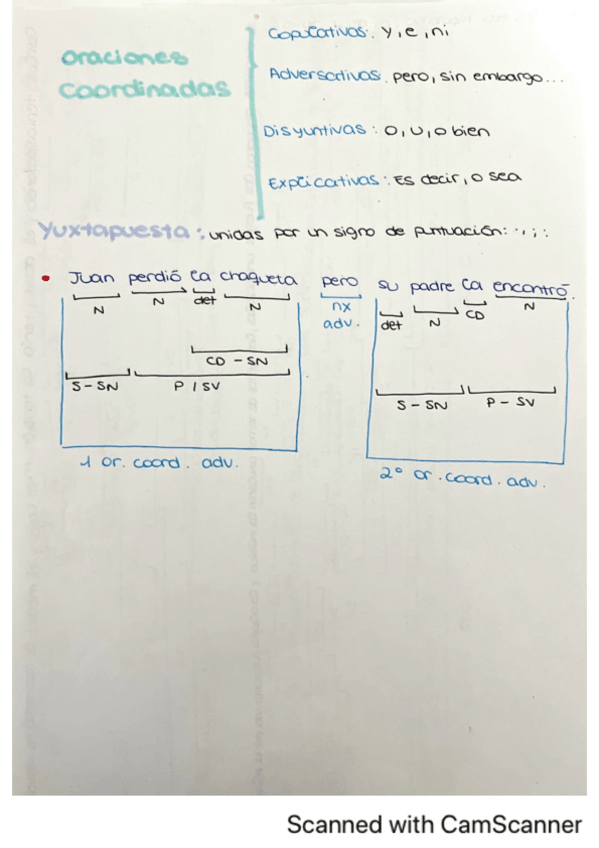 Oraciones
Coordinadas
Copulativas. y, e, ni
Adversativas. pero, sin embargo...
Disyuntivas: o, u, o bien
Explicativas: Es decir, o sea
Yuxtapuesta: unidas por un signo de puntuación: . , ; :
• Juan perdió la chaqueta pero su padre la encontró.
N N det N nx adv. det N CD N
CD - SN
S - SN P / SV S - SN P - SV
1 or. coord. adv. 2º or. coord. adv.
Scanned with CamScanner